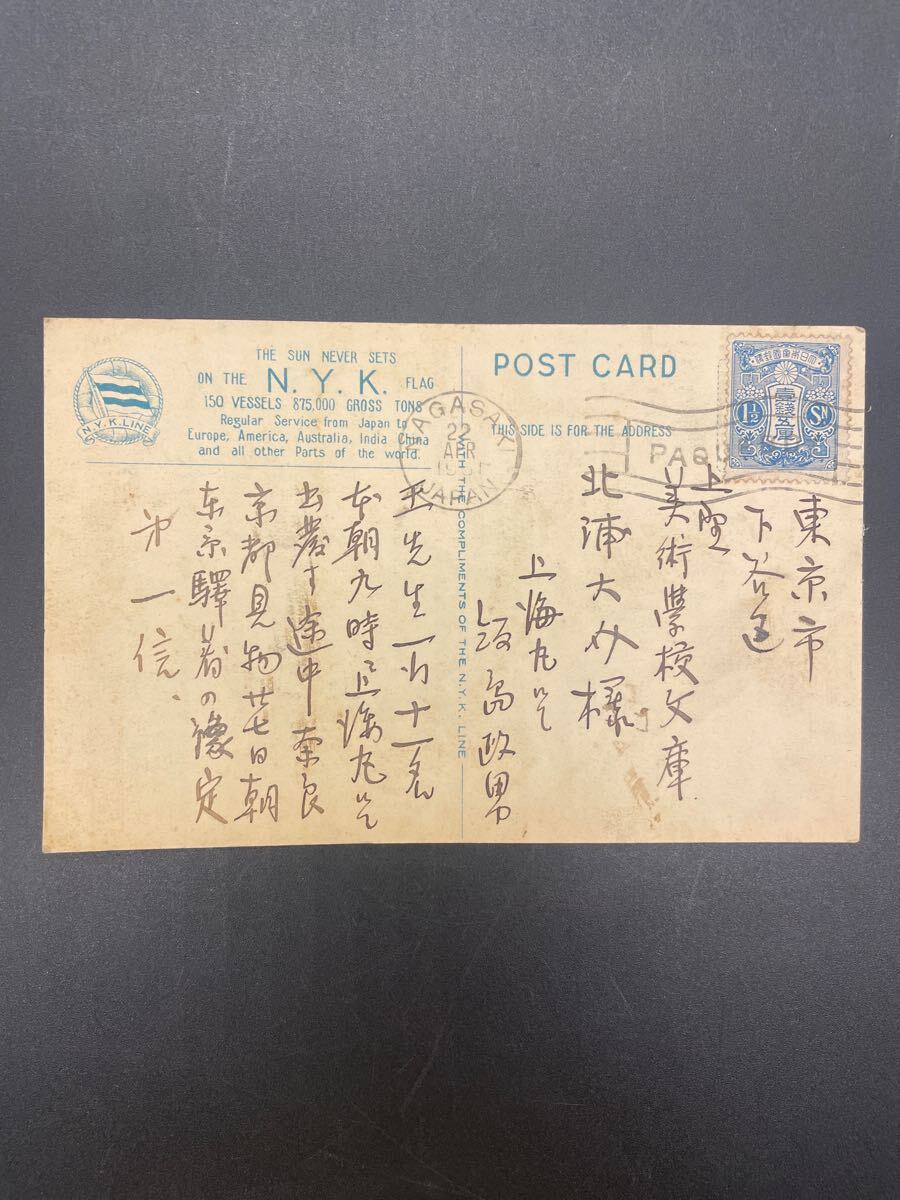 THE SUN NEVER SETS
ON THE N. Y. K. FLAG
150 VESSELS 875,000 GROSS TONS
Regular Service from Japan to
Europe, America, Australia, India China
and all other Parts of the world.
N.Y.K.LINE
POST CARD
THIS SIDE IS FOR THE ADDRESS
WITH THE COMPLIMENTS OF THE N.Y.K. LINE
NAGASAKI
22
APR
JAPAN
PAQU
大日本帝國郵便
壹錢五厘
1½ SN
東京市
下谷区
上野
美術學校文庫
北浦大介様
上海丸にて
飯島政男
王先生一行十一名
本朝九時上海丸にて
出発す途中奈良
京都見物廿七日朝
東京驛着の豫定
第一信、